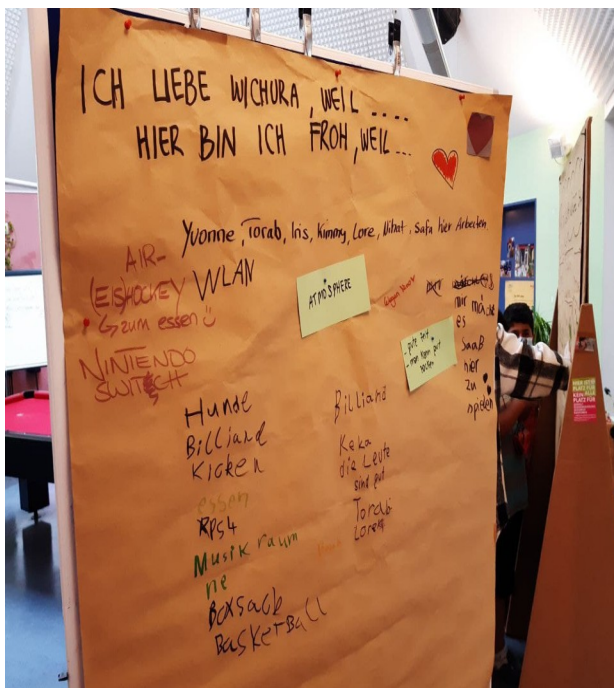 ICH LIEBE WICHURA, WEIL ....
HIER BIN ICH FROH, WEIL ...
Yvonne, Torab, Iris, Kimmy, Lore, Nihat, Safa hier Arbeiten
AIR-
(EIS)HOCKEY
↳ zum essen
NINTENDO
SWITCH
WLAN
ATMOSPHERE
- gute Zeit
- man kann gut
mir mache
es
SaaB
hier
zu
spielen
Hunde
Billiard
Kicken
essen
PS4
Musik raum
ne
Boxsack
BASKETBALL
Billiard
Keka
die Leute
sind gut
Torab
Lore
PLATZ FÜR